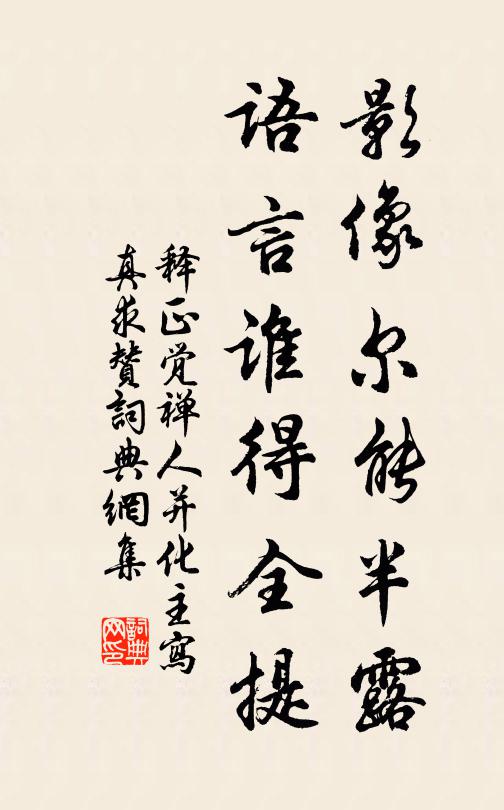 影像尔能半露
语言谁得全提
释正觉禅人并化主寫
真求贊詞典網集
詞典网印